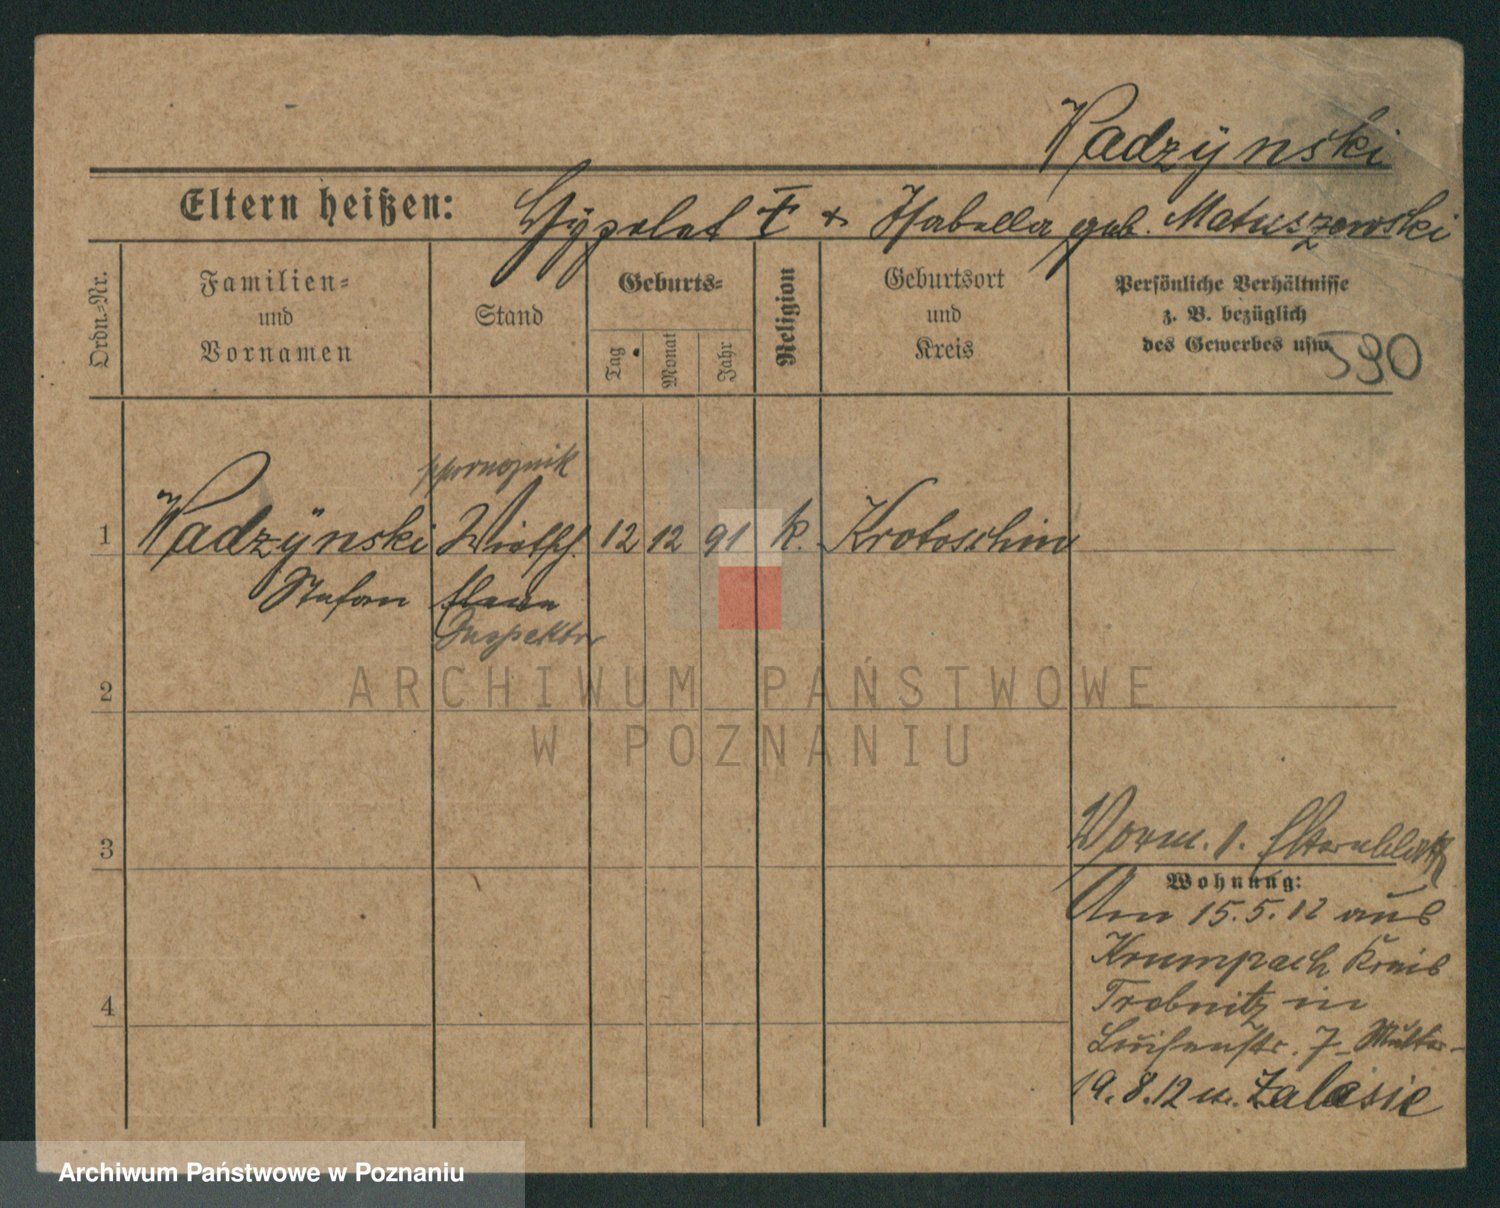 Wadzÿnski
Eltern heißen: Hÿpolat † + Isabella geb. Matuszewski
Ordn.-Nr.
Familien-
und
Vornamen
Stand
Geburts-
Tag
Monat
Jahr
Religion
Geburtsort
und
Kreis
Persönliche Verhältnisse
z. B. bezüglich
des Gewerbes usw.
590
1 Wadzÿnski Wirtsch. 12 12 91 k. Krotoschin
Stefan
Inspektor
2
3
Vorm. s. Elternblatt
Wohnung:
Am 15.5.12 aus
Krumpach Kreis
Trebnitz in
4
Luisenstr. 7 Mutter
19.8.12 n. Zalesie
ARCHIWUM PAŃSTWOWE
W POZNANIU
Archiwum Państwowe w Poznaniu